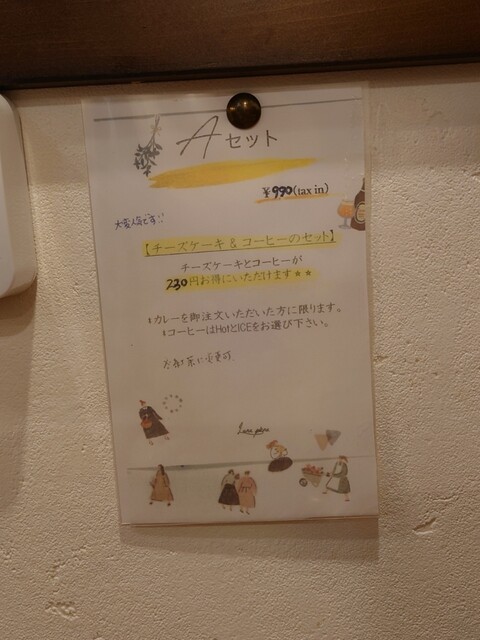 Aセット
¥990(tax in)
大変人気です!!
【チーズケーキ&コーヒーのセット】
チーズケーキとコーヒーが
230円お得にいただけます★★
カレーを御注文いただいた方に限ります。
コーヒーはHotとICEをお選び下さい。
お紅茶に変更可